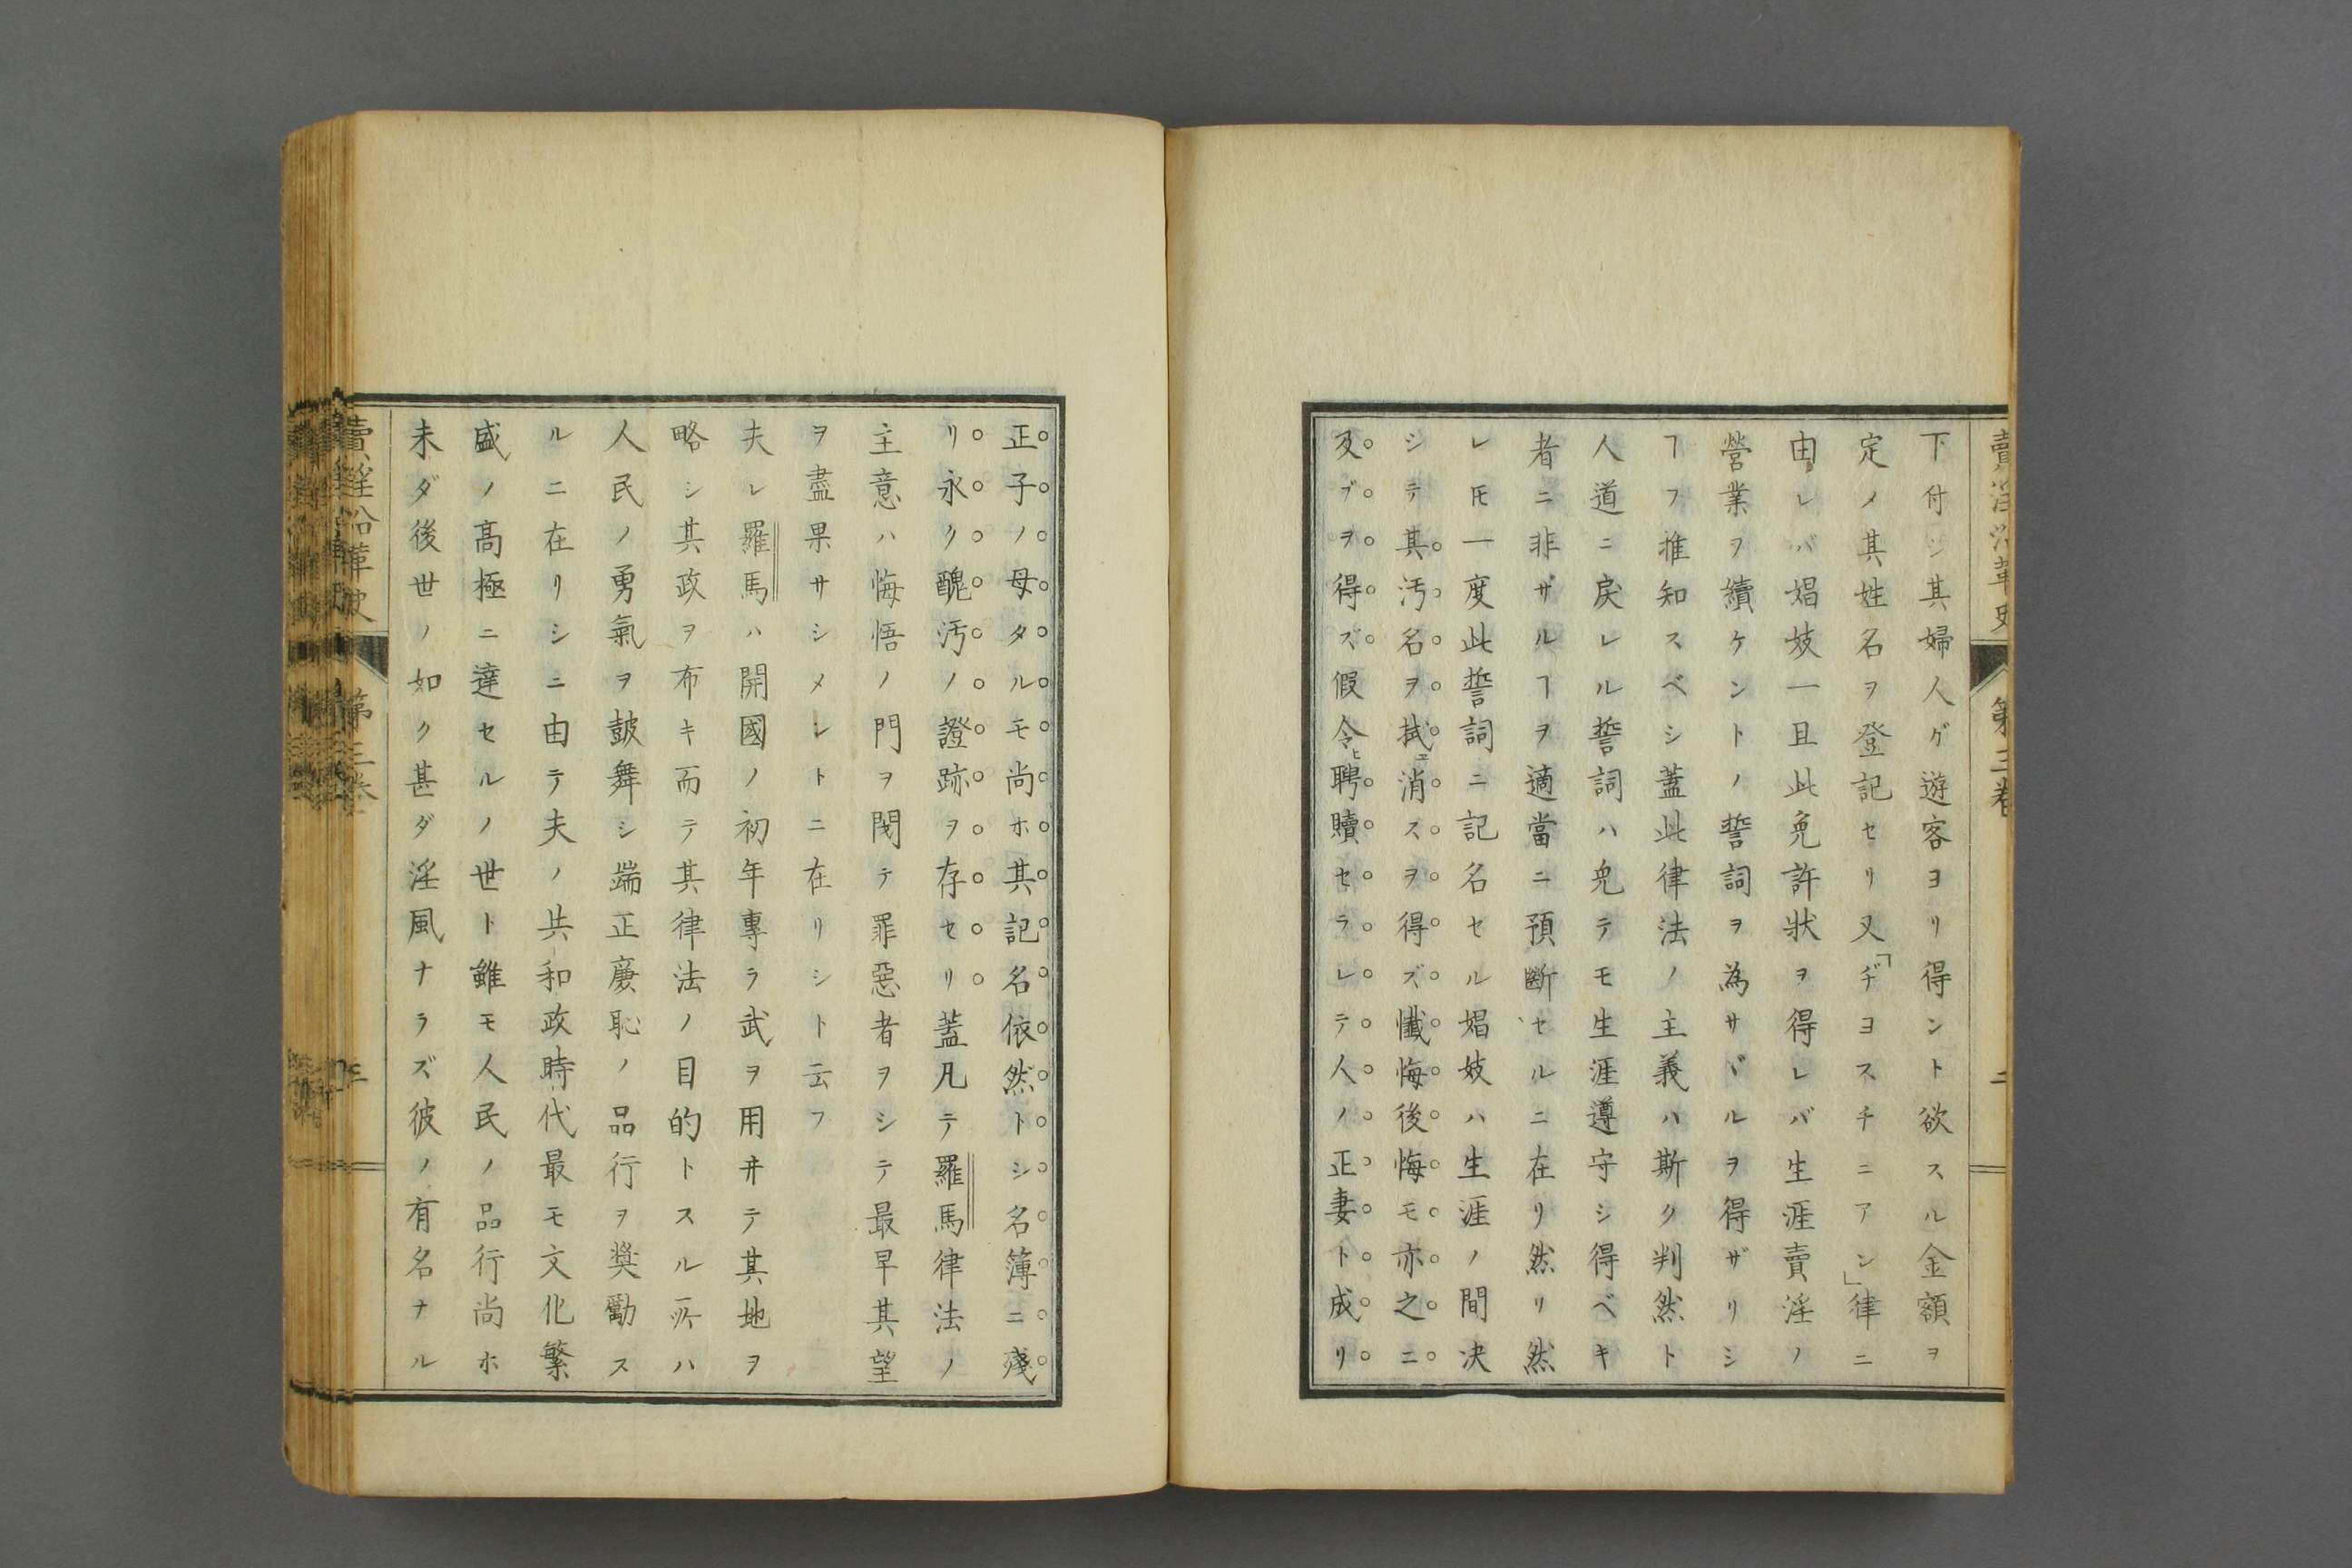 賣淫沿革史
第三卷
二
下付シ其婦人ガ遊客ヨリ得ント欲スル金額ヲ
定メ其姓名ヲ登記セリ又「ヂヨスチニアン」律ニ
由レバ娼妓一旦此免許狀ヲ得レバ生涯賣淫ノ
營業ヲ續ケントノ誓詞ヲ為サヾルヲ得ザリシ
ヿフ推知スベシ蓋此律法ノ主義ハ斯ク判然ト
人道ニ戾レル誓詞ハ免テモ生涯遵守シ得ベキ
者ニ非ザルヿヲ適當ニ預斷セルニ在リ然リ然
レ𪜈一度此誓詞ニ記名セル娼妓ハ生涯ノ間决
シテ其汚名ヲ拭ヱ消スヲ得ズ懺悔後悔モ亦之ニ
及ブヲ得ズ假令ヒ聘贖セラレテ人ノ正妻ト成リ
正子ノ母タルモ尚ホ其記名依然トシ名簿ニ殘
リ永ク醜汚ノ證跡ヲ存セリ蓋凡テ羅馬律法ノ
主意ハ悔悟ノ門ヲ閉テ罪惡者ヲシテ最早其望
ヲ盡果サシメントニ在リシト云フ
夫レ羅馬ハ開國ノ初年專ラ武ヲ用ヰテ其地ヲ
略シ其政ヲ布キ而テ其律法ノ目的トスル所ハ
人民ノ勇氣ヲ皷舞シ端正廉恥ノ品行ヲ奬勵ス
ルニ在リシニ由テ夫ノ共和政時代最モ文化繁
盛ノ高極ニ達セルノ世ト雖モ人民ノ品行尚ホ
未ダ後世ノ如ク甚ダ淫風ナラズ彼ノ有名ナル
賣淫沿革史
第三卷
三